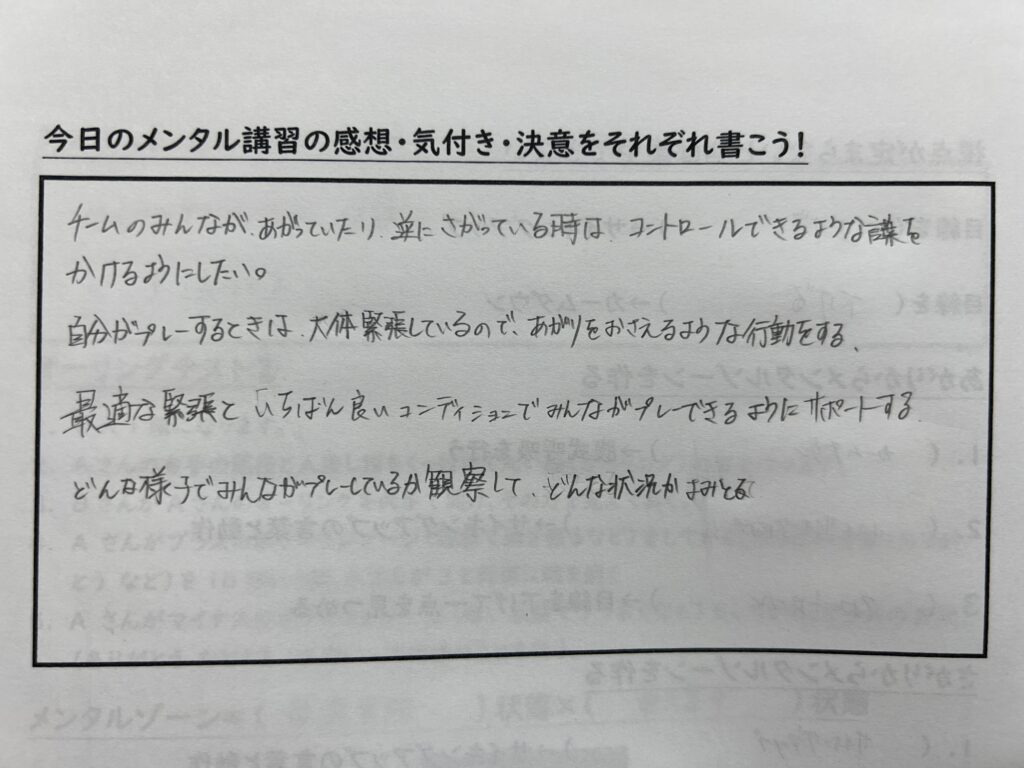 今日のメンタル講習の感想・気付き・決意をそれぞれ書こう!
チームのみんなが、あがっていたり、逆にさがっている時は、コントロールできるような声を
かけるようにしたい。
自分がプレーするときは、大体緊張しているので、あがりをおさえるような行動をする、
最適な緊張といちばん良いコンディションでみんながプレーできるようにサポートする、
どんな様子でみんながプレーしているか観察して、どんな状況かよみとる